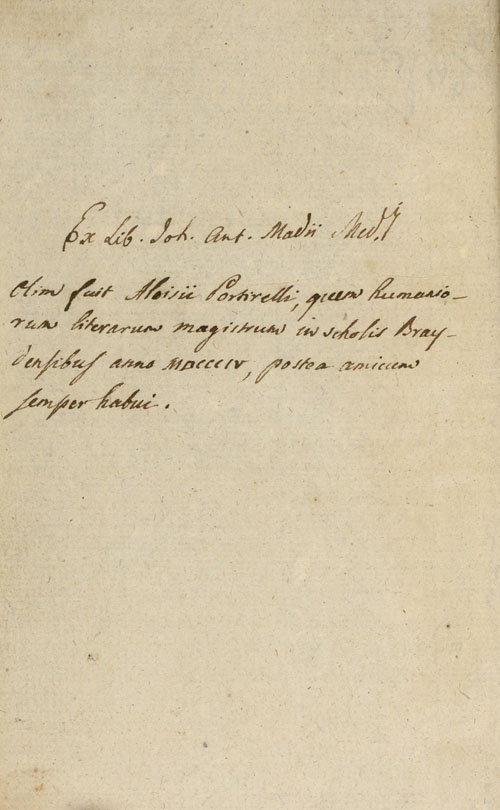 Ex Lib. Joh. Ant. Madii Med.i
Olim fuit Aloisii Portirelli, quem humanio-
rum literarum magistrum in scholis Bray-
densibus anno MDCCCIV, postea amicum
semper habui.